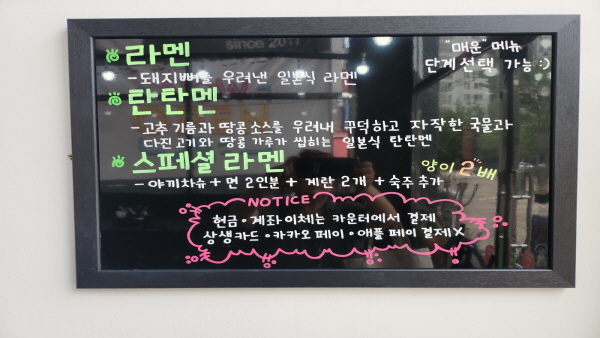 since 2017
라멘
"매운" 메뉴
단계선택 가능 :)
- 돼지뼈를 우려낸 일본식 라멘
탄탄멘
- 고추 기름과 땅콩소스를 우려내 꾸덕하고 자작한 국물과
다진고기와 땅콩 가루가 씹히는 일본식 탄탄멘
스페셜 라멘
양이 2배
- 야끼차슈 + 면 2인분 + 계란 2개 + 숙주 추가
NOTICE
현금 · 계좌이체는 카운터에서 결제
상생카드 · 카카오페이 · 애플페이 결제 X